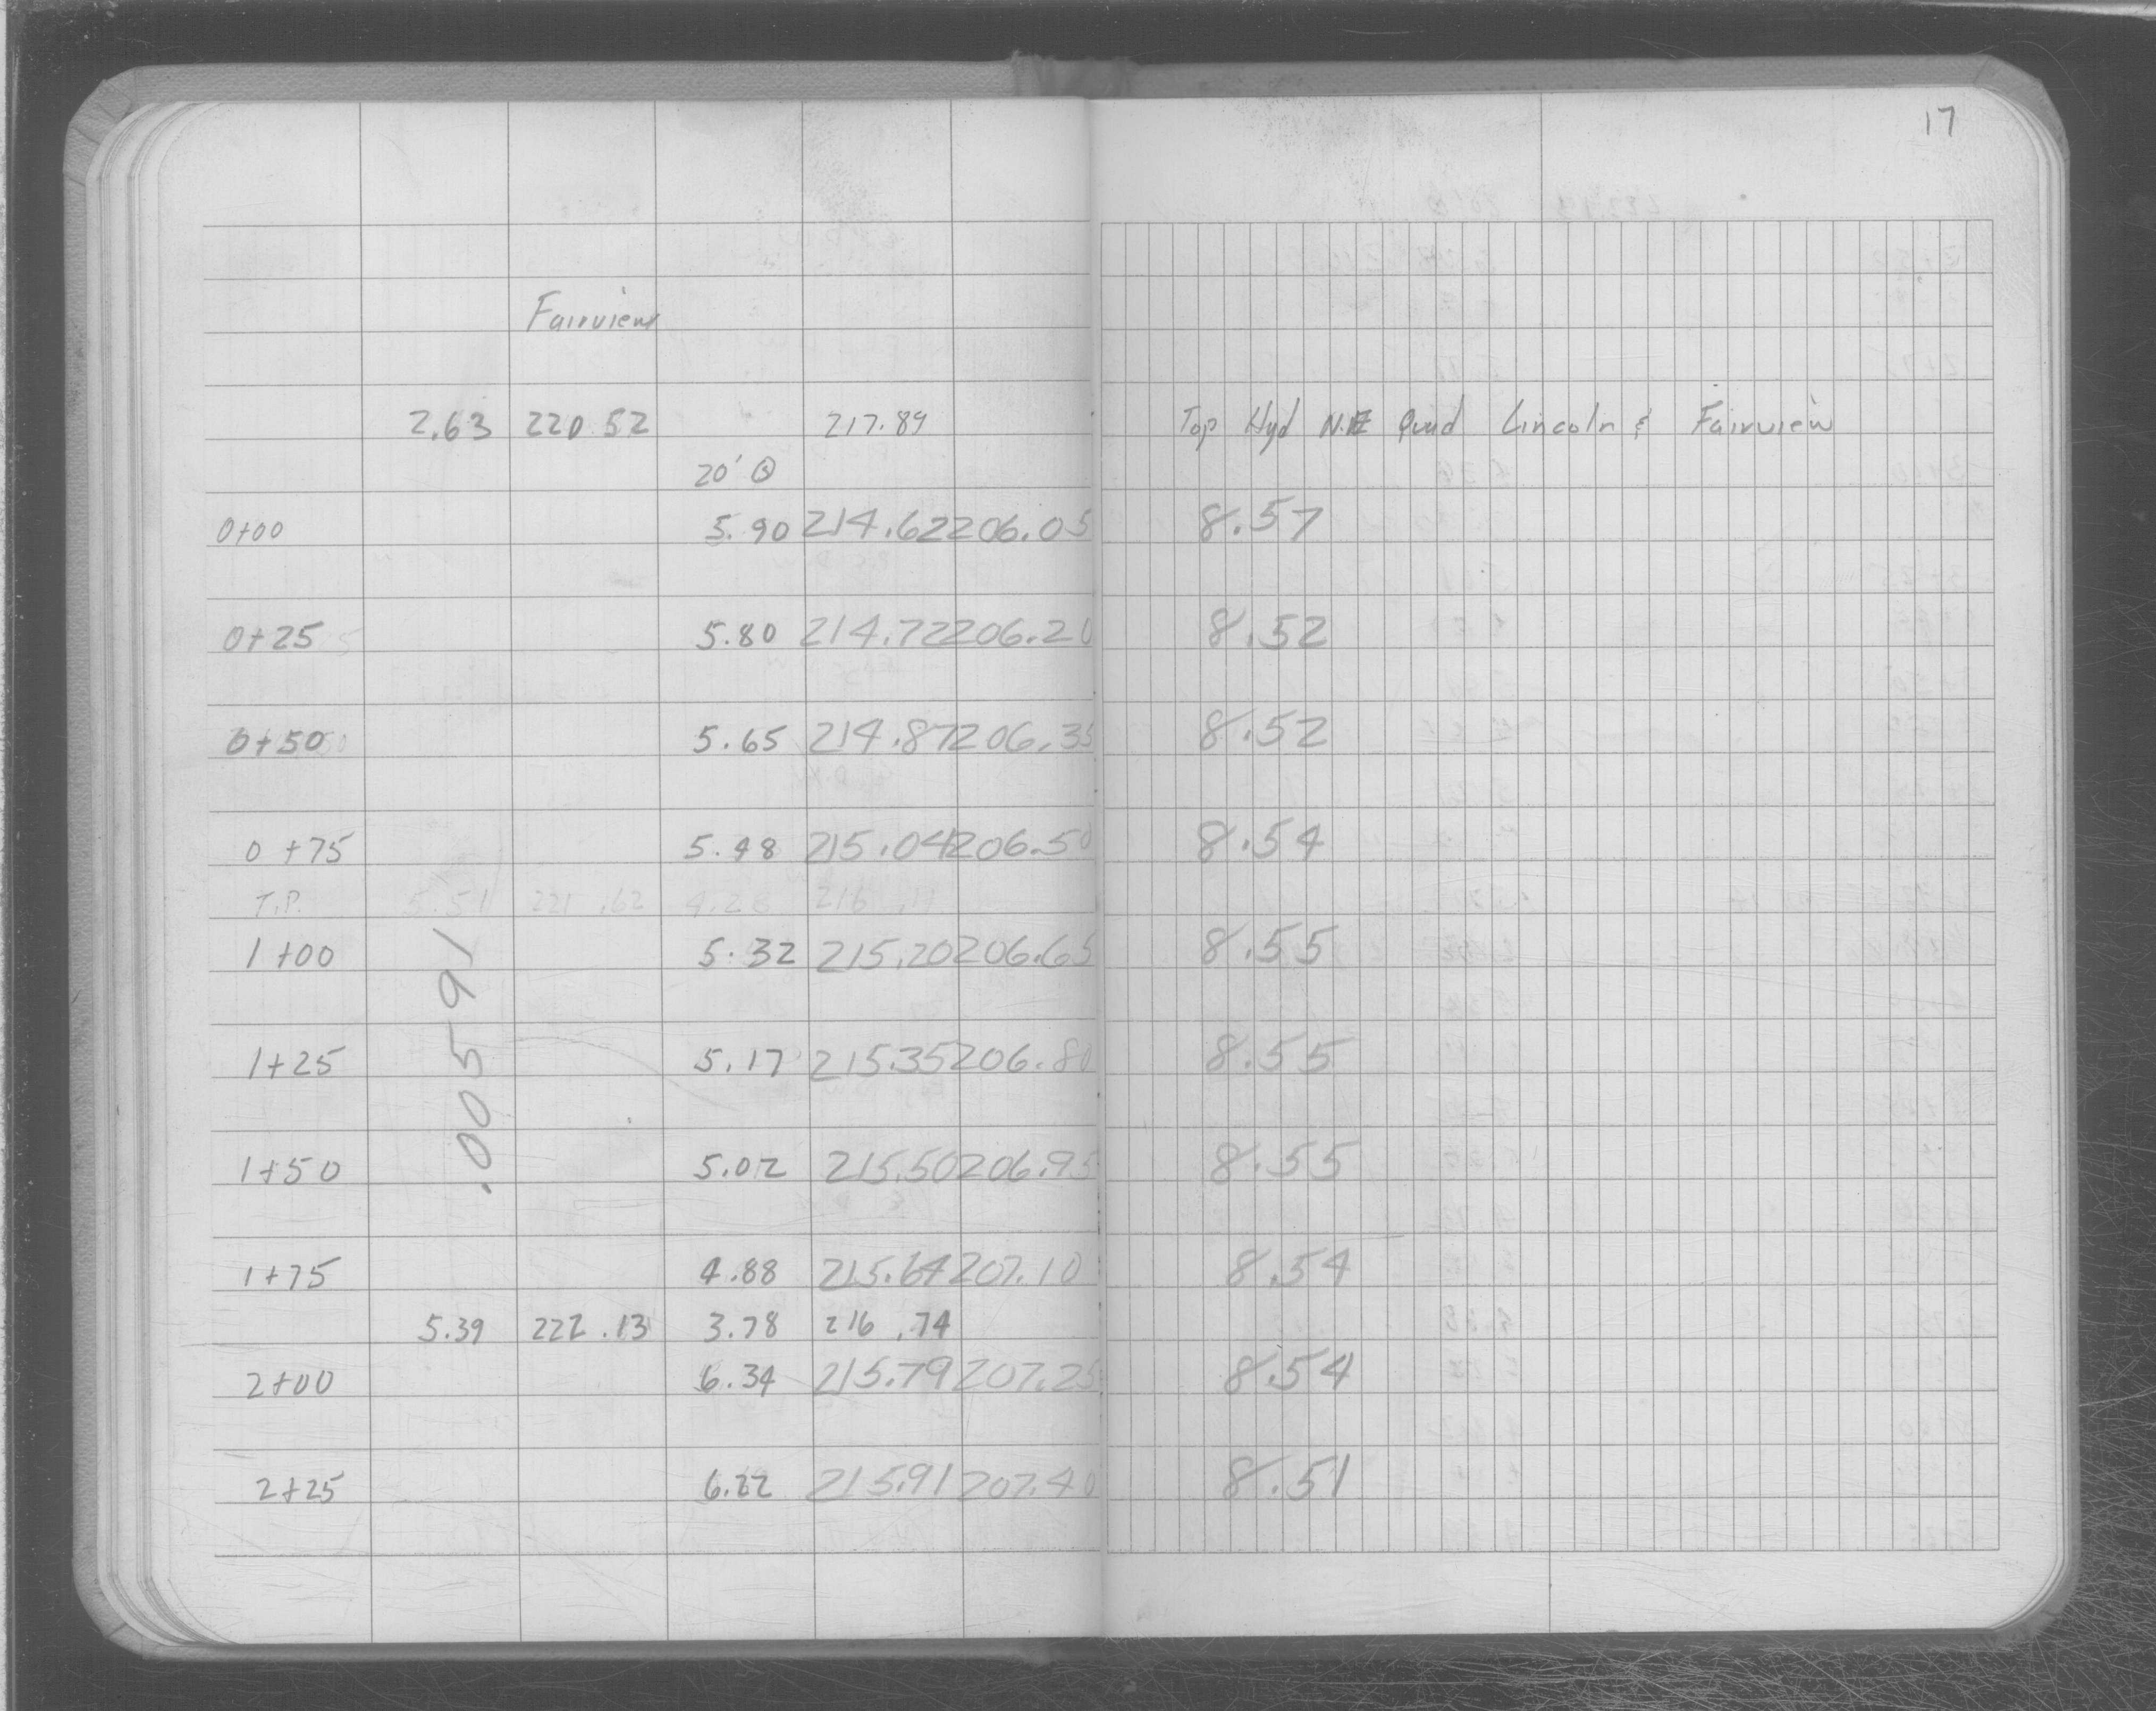 17
Fairview
2.63 220.52 217.89 Top Hyd N.E Quad Lincoln & Fairview
20'
0+00 5.90 214.62 206.05 8.57
0+25 5.80 214.72 206.20 8.52
0+50 5.65 214.87 206.35 8.52
0+75 5.48 215.04 206.50 8.54
T.P. 5.51 221.62 4.28 216.11
1+00 5.32 215.20 206.65 8.55
1+25 5.17 215.35 206.80 8.55
1+50 5.02 215.50 206.95 8.55
1+75 4.88 215.64 207.10 8.54
5.39 222.13 3.78 216.74
2+00 6.34 215.79 207.25 8.54
2+25 6.22 215.91 207.40 8.51
.00591